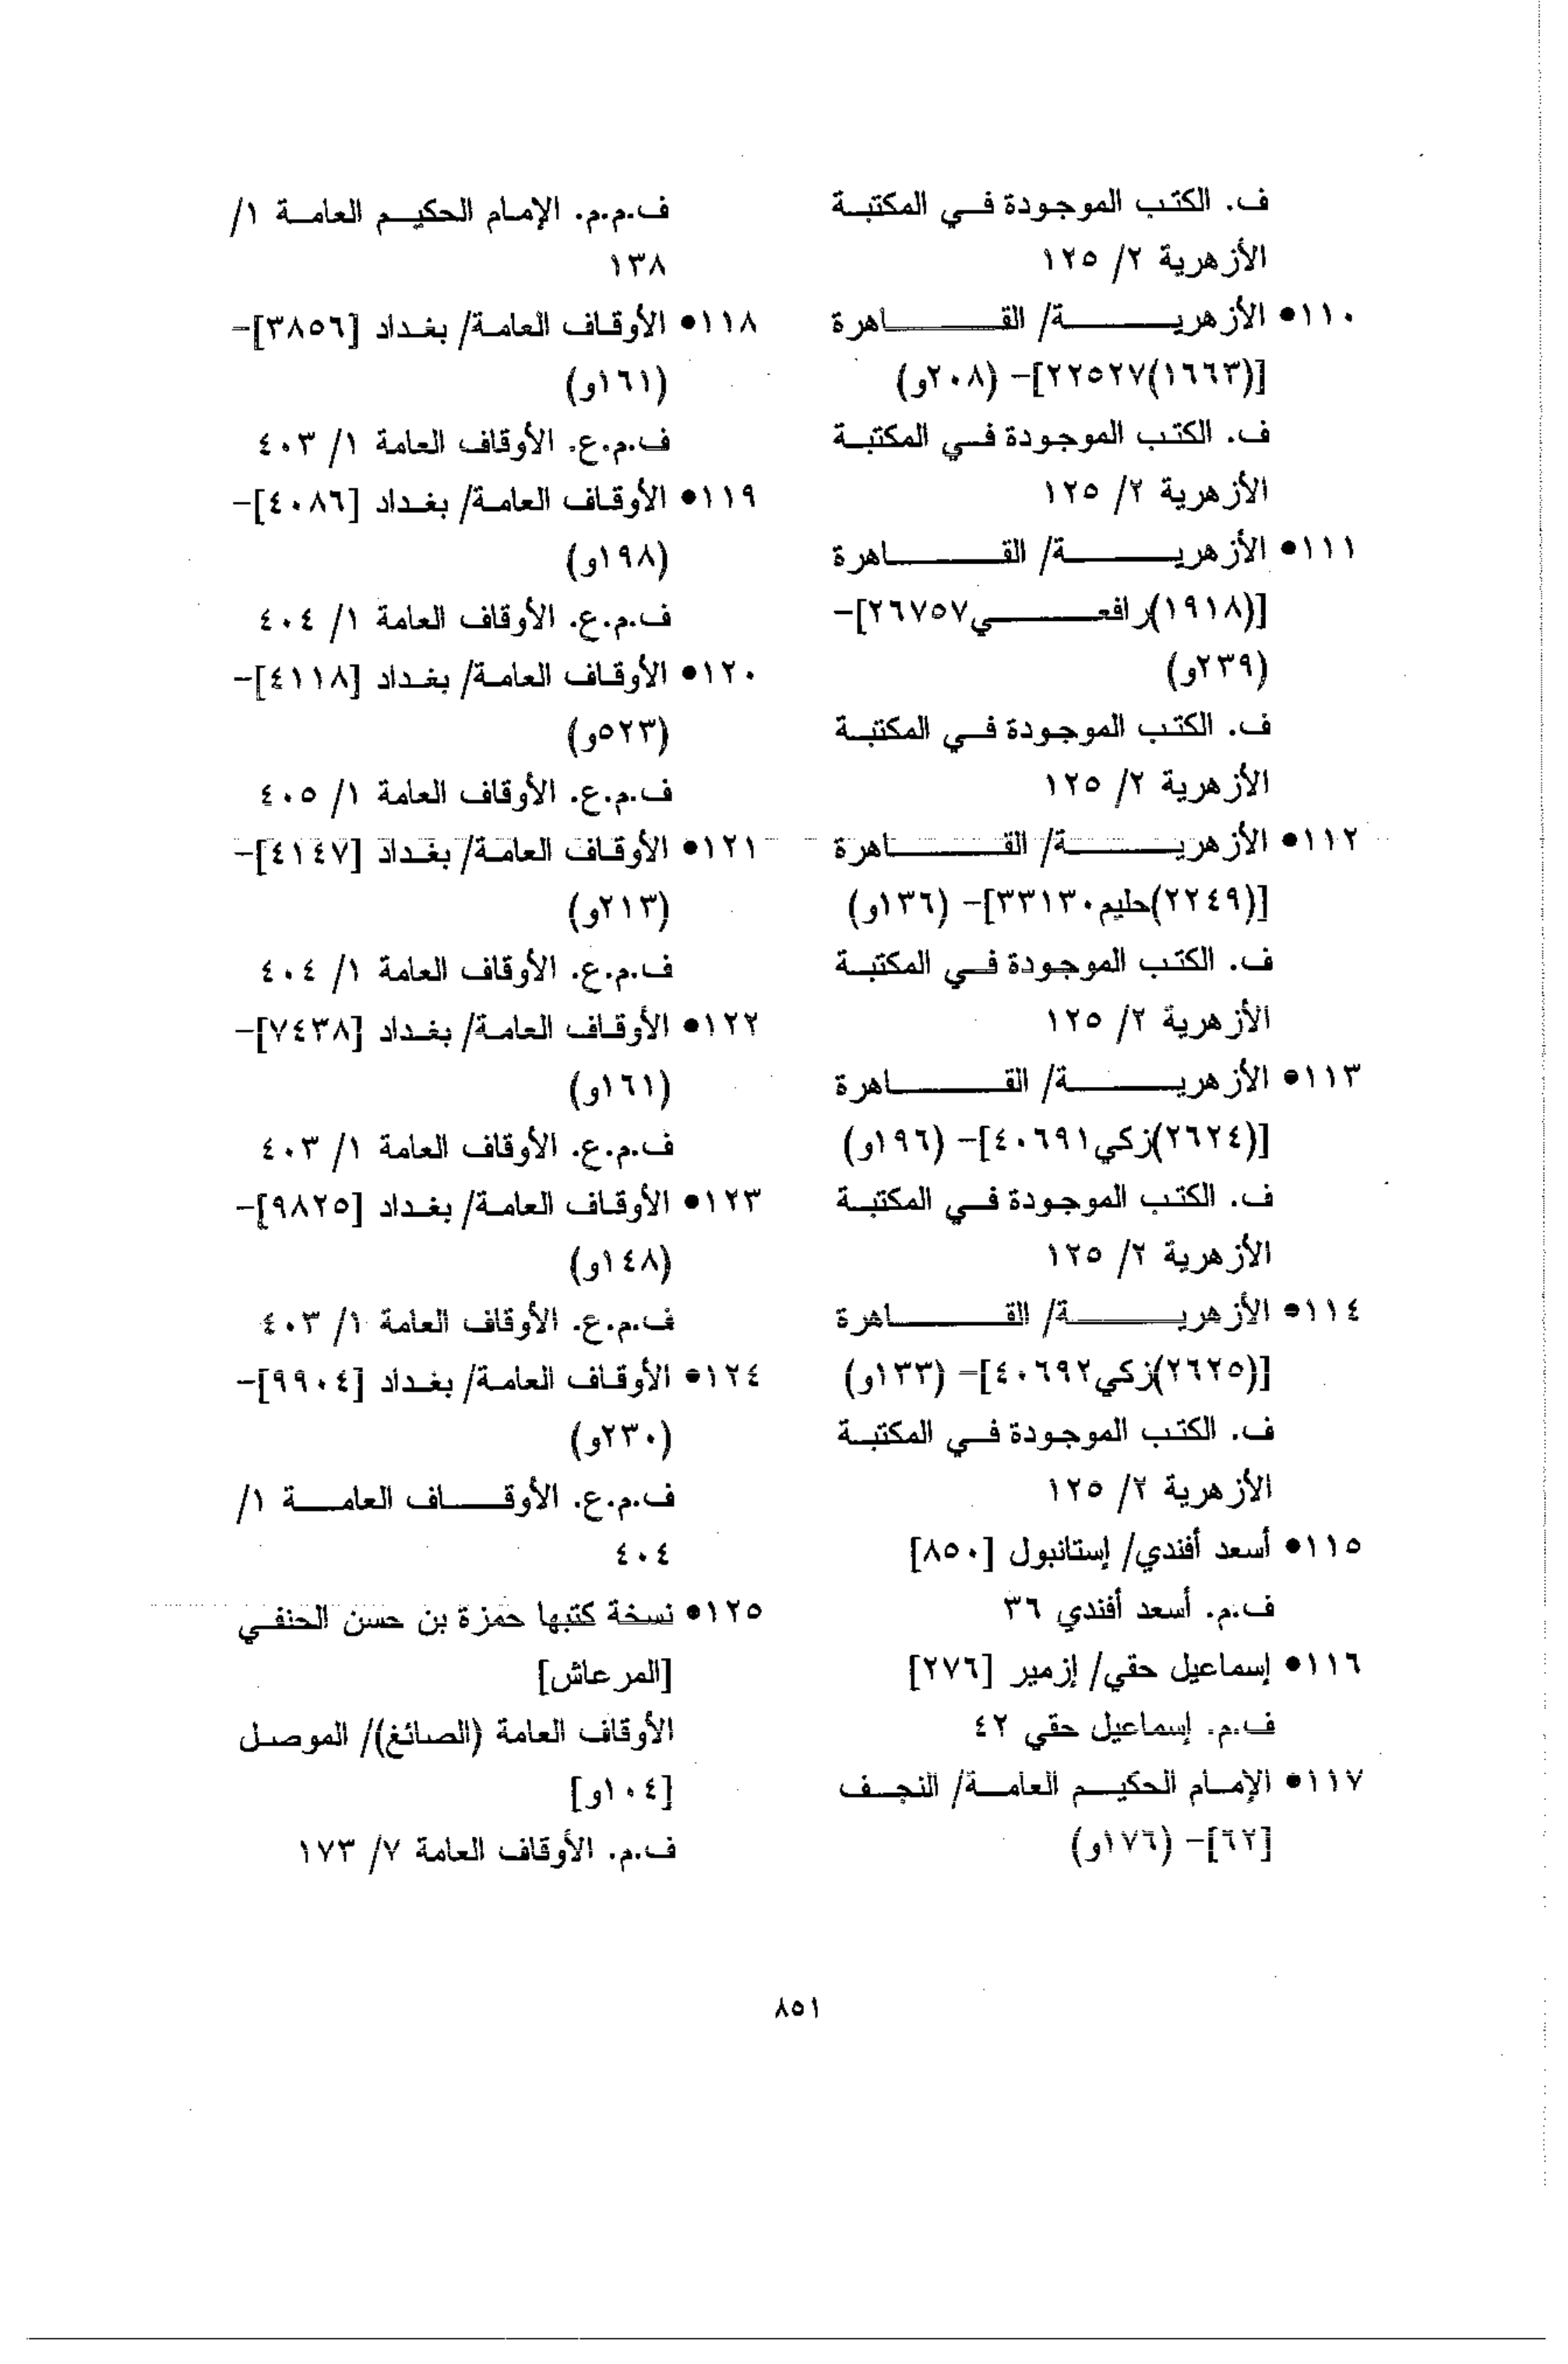 ف. الكتب الموجودة في المكتبة
الأزهرية ٢/ ١٢٥
١١٠• الأزهرية/ القاهرة
[(١٦٦٣)٢٢٥٢٧]- (٢٠٨و)
ف. الكتب الموجودة في المكتبة
الأزهرية ٢/ ١٢٥
١١١• الأزهرية/ القاهرة
[(١٩١٨)رافعي٢٦٧٥٧]-
(٢٣٩و)
ف. الكتب الموجودة في المكتبة
الأزهرية ٢/ ١٢٥
١١٢• الأزهرية/ القاهرة
[(٢٢٤٩)حليم٣٣١٣٠]- (١٣٦و)
ف. الكتب الموجودة في المكتبة
الأزهرية ٢/ ١٢٥
١١٣• الأزهرية/ القاهرة
[(٢٦٢٤)زكي٤٠٦٩١]- (١٩٦و)
ف. الكتب الموجودة في المكتبة
الأزهرية ٢/ ١٢٥
١١٤• الأزهرية/ القاهرة
[(٢٦٢٥)زكي٤٠٦٩٢]- (١٣٣و)
ف. الكتب الموجودة في المكتبة
الأزهرية ٢/ ١٢٥
١١٥• أسعد أفندي/ إستانبول [٨٥٠]
ف.م. أسعد أفندي ٣٦
١١٦• إسماعيل حقي/ إزمير [٢٧٦]
ف.م. إسماعيل حقي ٤٢
١١٧• الإمام الحكيم العامة/ النجف
[٦٢]- (١٧٦و)
ف.م.م. الإمام الحكيم العامة ١/
١٣٨
١١٨• الأوقاف العامة/ بغداد [٣٨٥٦]-
(١٦١و)
ف.م.ع. الأوقاف العامة ١/ ٤٠٣
١١٩• الأوقاف العامة/ بغداد [٤٠٨٦]-
(١٩٨و)
ف.م.ع. الأوقاف العامة ١/ ٤٠٤
١٢٠• الأوقاف العامة/ بغداد [٤١١٨]-
(٥٢٣و)
ف.م.ع. الأوقاف العامة ١/ ٤٠٥
١٢١• الأوقاف العامة/ بغداد [٤١٤٧]-
(٢١٣و)
ف.م.ع. الأوقاف العامة ١/ ٤٠٤
١٢٢• الأوقاف العامة/ بغداد [٧٤٣٨]-
(١٦١و)
ف.م.ع. الأوقاف العامة ١/ ٤٠٣
١٢٣• الأوقاف العامة/ بغداد [٩٨٢٥]-
(١٤٨و)
ف.م.ع. الأوقاف العامة ١/ ٤٠٣
١٢٤• الأوقاف العامة/ بغداد [٩٩٠٤]-
(٢٣٠و)
ف.م.ع. الأوقاف العامة ١/
٤٠٤
١٢٥• نسخة كتبها حمزة بن حسن الحنفي
[المرعاش]
الأوقاف العامة (الصائغ)/ الموصل
[١٠٤و]
ف.م. الأوقاف العامة ٧/ ١٧٣
٨٥١